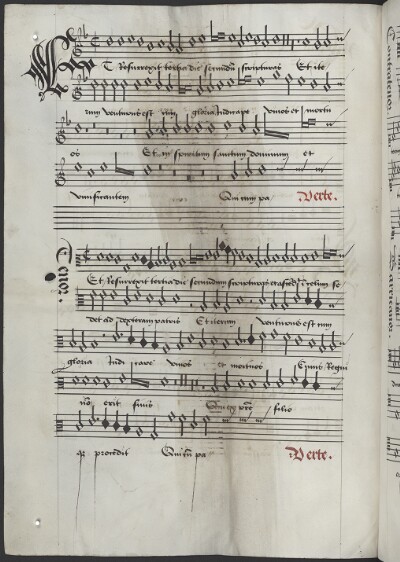 Et Resurrexit tertia die secundum scripturas Et ite
rum venturus est cum gloria Iudicare vivos et mortu
os Et in spiritum sanctum dominum et
vivificantem Qui cum pa Verte.
Tenor.
Et Resurrexit tertia die secundum scripturas celum se
det ad dexteram patris Et iterum venturus est cum
gloria Iudicare vivos et mortuos Cuius Regni
non erit finis filio
procedit Qui cum pa Verte.
Contratenor